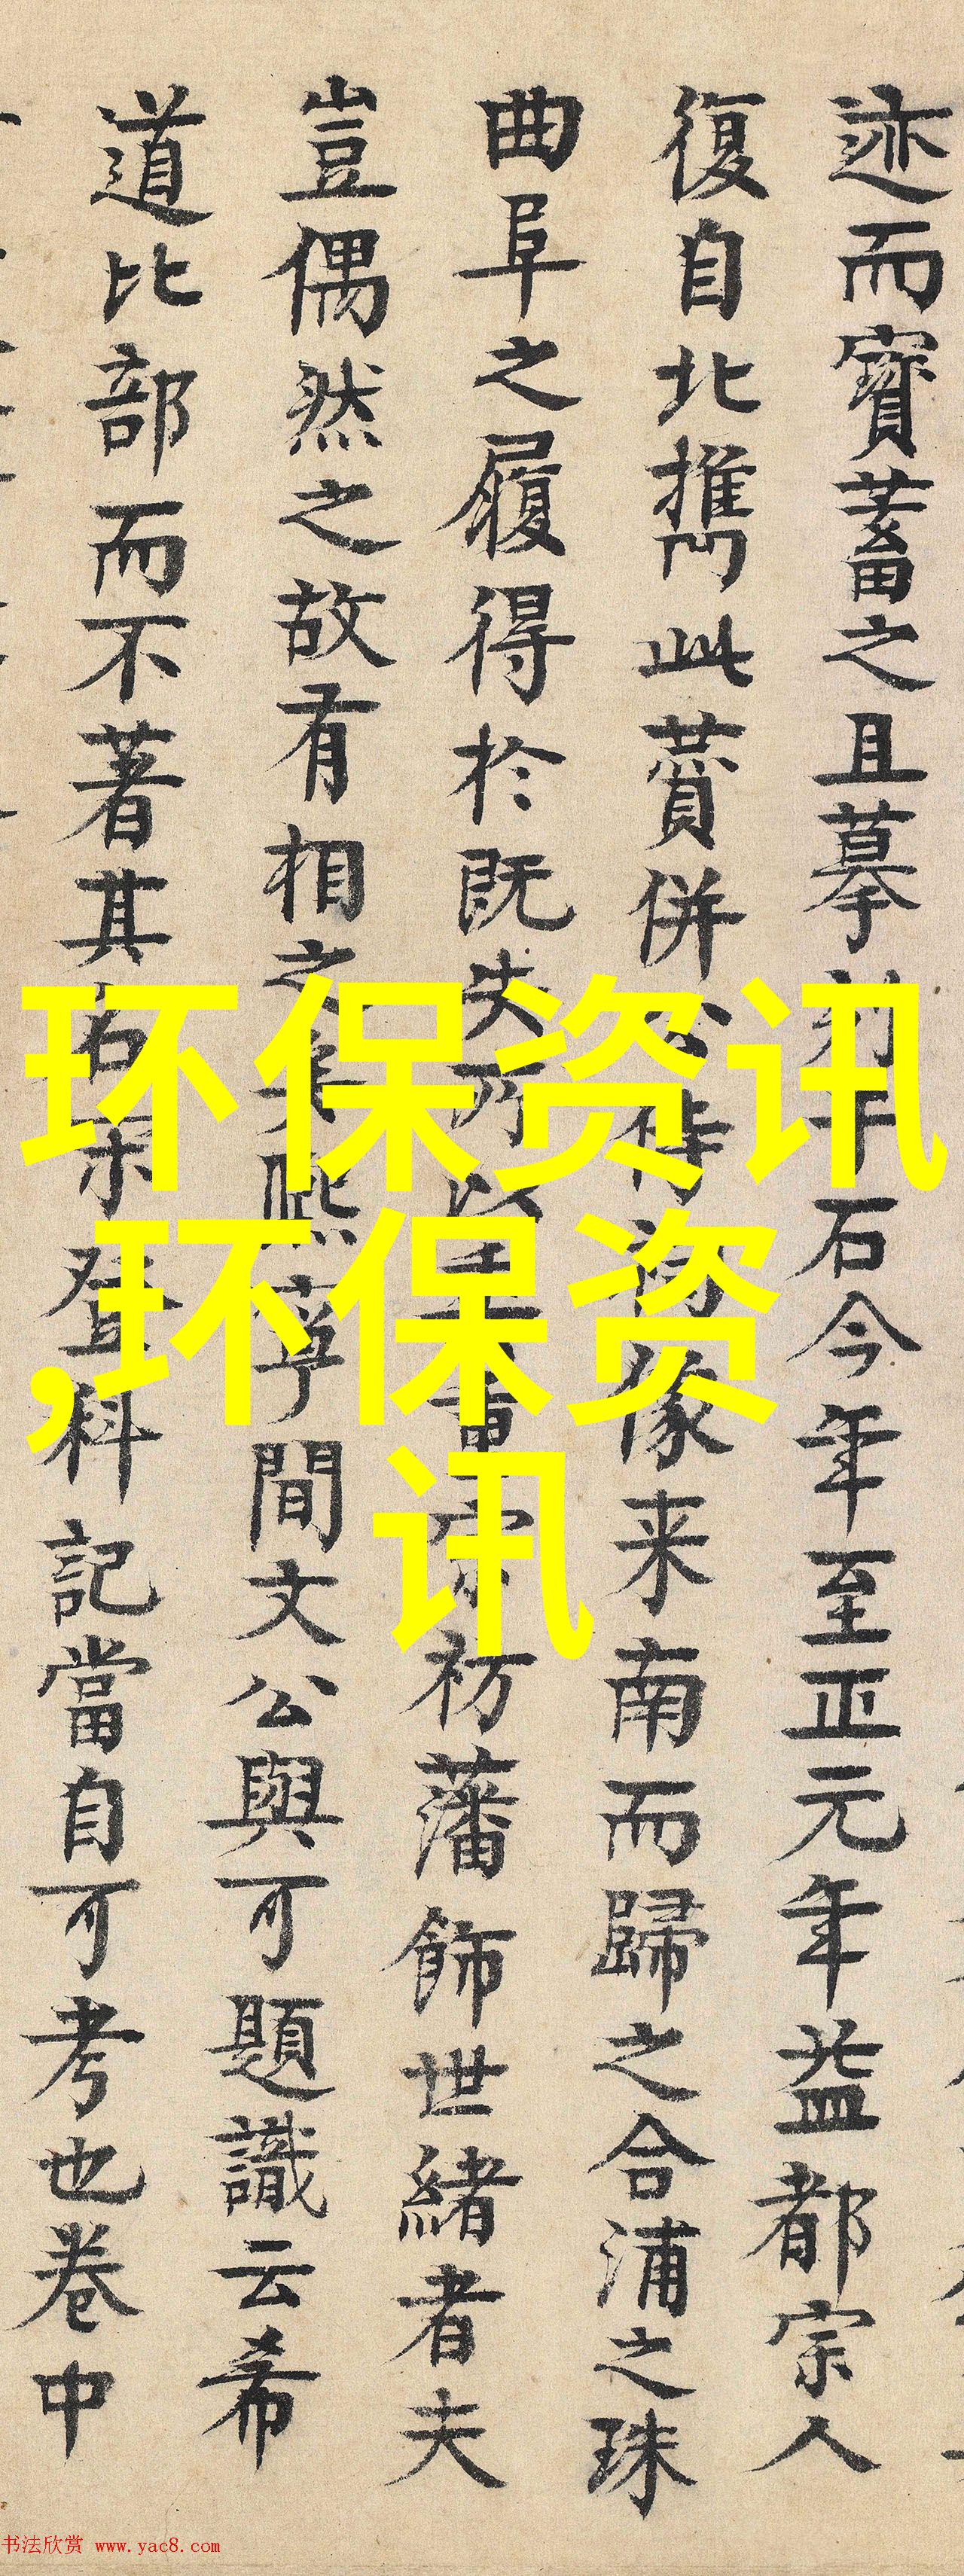 迹而寶蓄之且摹刻于石今年至正元年益都宗人
復自北携此賛併待像来南而歸之合浦之珠
曲阜之履得於既失所以宗初藩飾世緒者夫
豈偶然之故有相之矣熙寧間文公與可題識云希
道比部而不著其名宋登科記當自可考也卷中
环保资讯
,环保资
讯
书法欣赏 www.yac8.com